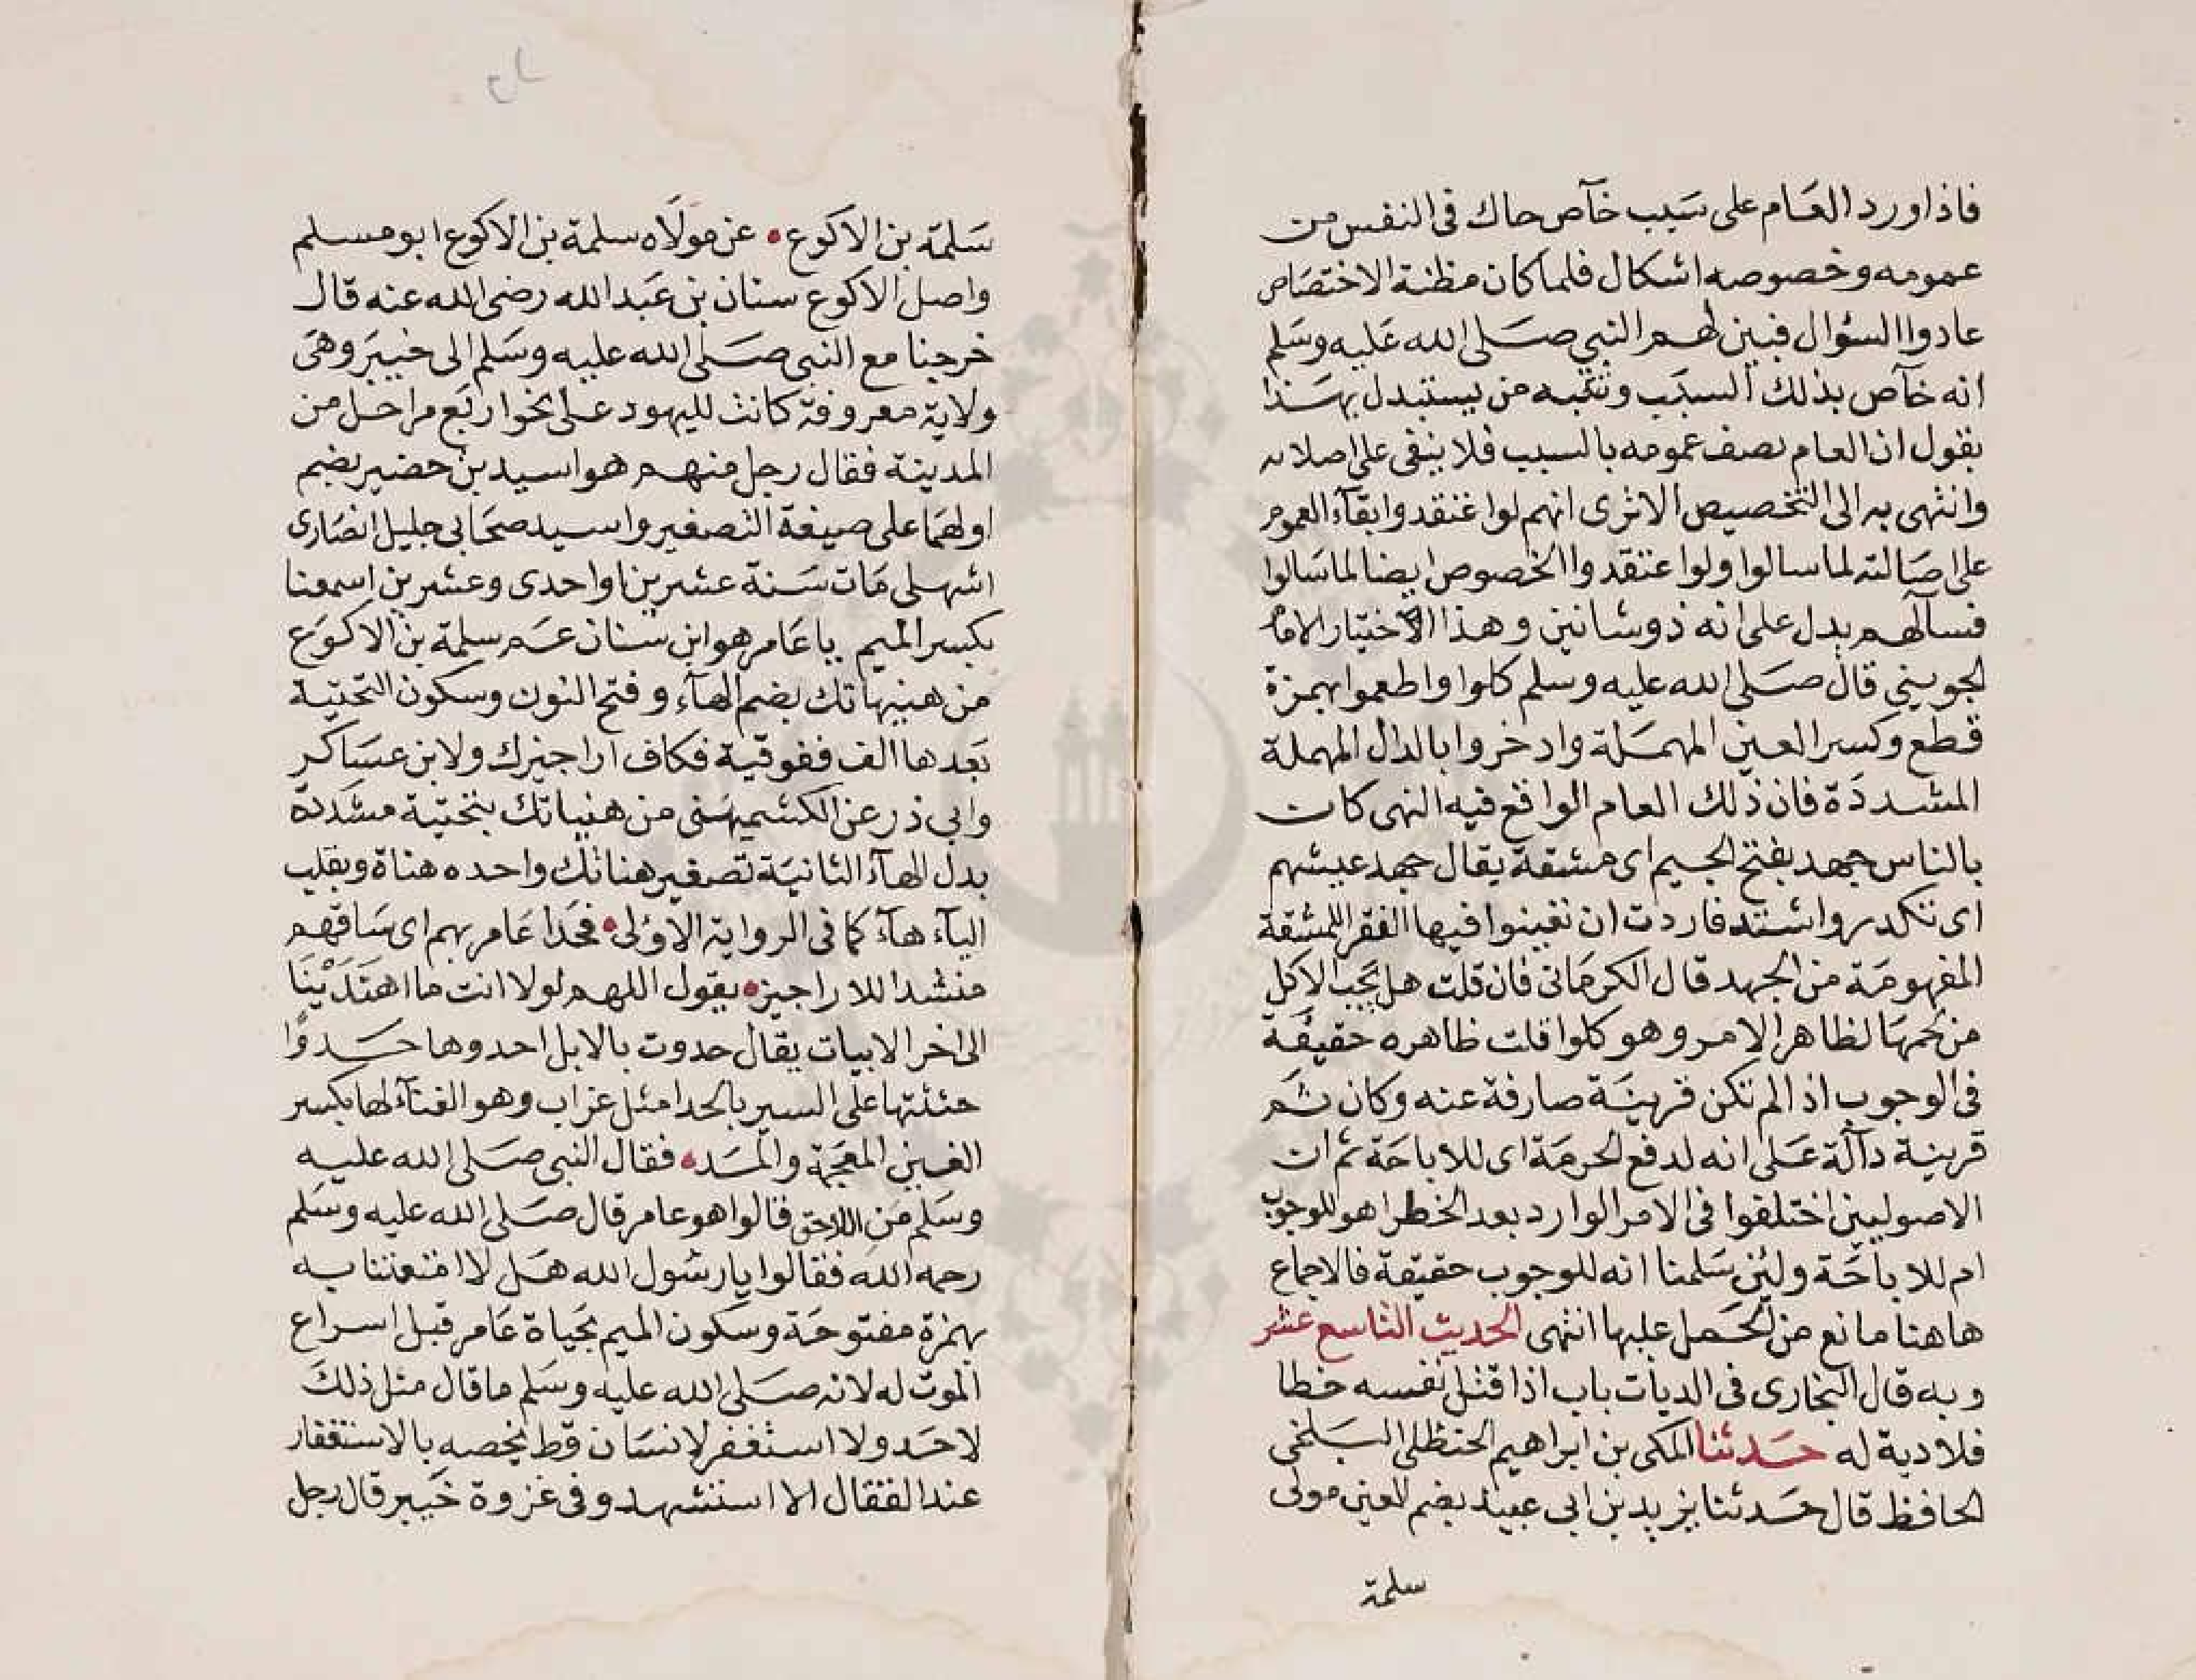 فاذا ورد العام على سبب خآص حاك فى النفس من
عمومه وخصوصه اشكال فلما كان مظنة الاختصاص
عادوا السؤال فبين لهم النبي صلى الله عليه وسلم
انه خآص بذلك السبب ويتنبه من يستبدل بهذا
بقول ان العام يصف عمومه بالسبب فلا يبقى على اصلاته
وانتهى به الى التخصيص الا ترى انهم لو اعتقدوا بقآء العموم
على اصالته لما سالوا ولو اعتقدوا الخصوص ايضا لما سالوا
فسآلهم يدل على انه ذو شانين وهذا اختيار الامام
لجويني قال صلى الله عليه وسلم كلوا واطعموا بهمزة
قطع وكسر العين المهملة وادخروا بالدال المهملة
المشددة فان ذلك العام الواقع فيه النهى كان
بالناس جهد بفتح الجيم اى مشقة يقال جهد عيشهم
اى تنكدر واشتد فاردت ان تعينوا فيها الفقر اللمشقة
المفهومة من الجهد قال الكرمانى فان قلت هل يجب الاكل
من لحمها لظاهر الامر وهو كلوا قلت ظاهره حقيقة
فى الوجوب اذا لم تكن قرينة صارفة عنه وكان ثم
قرينة دآلة على انه لدفع الحرمة اى للاباحة ثم ان
الاصوليين اختلفوا فى الامر الوارد بعد الخطر اهو للوجوب
ام للاباحة ولئن سلمنا انه للوجوب حقيقة فالاجماع
هاهنا مانع من الحمل عليها انتهى الحديث التاسع عشر
وبه قال البخارى فى الديات باب اذا قتل نفسه خطا
فلا دية له حدثنا المكى بن ابراهيم الحنظلى البلخى
الحافظ قال حدثنا يزيد بن ابى عبيد بضم العين مولى
سلمة
سلمة بن الاكوع عن مولاه سلمة بن الاكوع ابو مسلم
واصل الاكوع سنان بن عبد الله رضى الله عنه قال
خرجنا مع النبى صلى الله عليه وسلم الى خيبر وهى
ولاية معروفة كانت لليهود على نحو اربع مراحل من
المدينة فقال رجل منهم هو اسيد بن حضير بضم
اولهما على صيغة التصغير واسيد صحابي جليل انصارى
اشهلى مات سنة عشرين او احدى وعشرين اسمعنا
بكسر الميم يا عامر هو ابن سنان عم سلمة بن الاكوع
من هنيهاتك بضم الهآء وفتح النون وسكون التحتية
بعدها الف ففوقية فكاف اراجيزك ولابن عساكر
وابى ذر عن الكشميهنى من هنياتك بتحتية مشددة
بدل الهآء الثانية تصغير هناتك واحده هناة ويقلب
اليآء هآء كما فى الرواية الاولى فحدا عامر بهم اى ساقهم
منشدا للاراجيز يقول اللهم لولا انت ما اهتدينا
الى اخر الابيات يقال حدوت بالابل احدوها حدوا
حثثتها على السير بالحدا مثل غراب وهو الغنآء لها بكسر
الغين المعجمة والمد فقال النبى صلى الله عليه
وسلم من قالوا هو عامر قال صلى الله عليه وسلم
رحمه الله فقالوا يا رسول الله هل لا امتعتنا به
بهمزة مفتوحة وسكون الميم بحياة عامر قبل اسراع
الموت له لانه صلى الله عليه وسلم ما قال مثل ذلك
لاحد ولا استغفر لانسان قط يخصه بالاستغفار
عند القتال الا استشهد وفى غزوة خيبر قال رجل